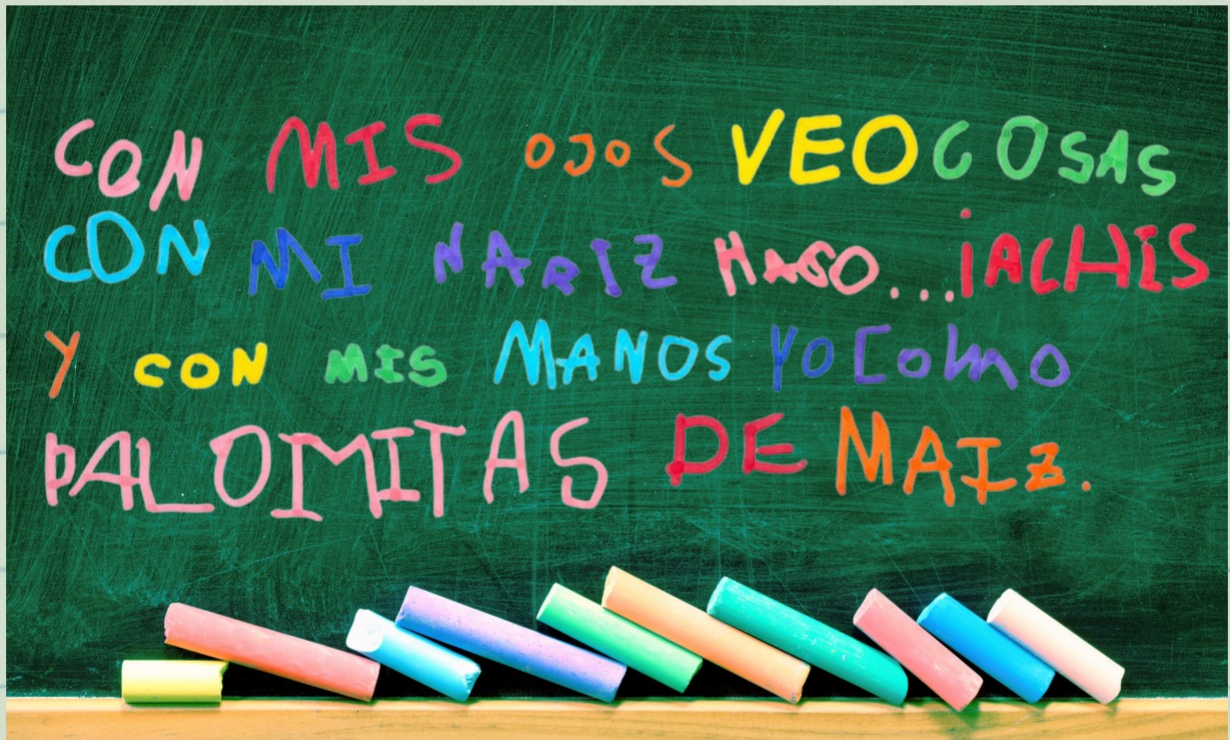 CON MIS OJOS VEO COSAS
CON MI NARIZ HAGO...¡ACHIS
Y CON MIS MANOS YO COMO
PALOMITAS DE MAIZ.